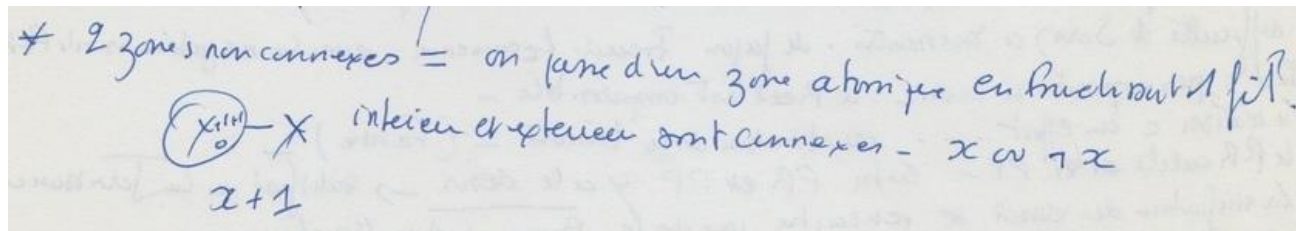 * 2 zones non connexes = on passe d'un zone atomique en franchissant 1 fil.
X - X intérieur et extérieur sont connexes - x ou ¬ x
x + 1